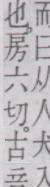 而曰从人犬
也。房六切。古音